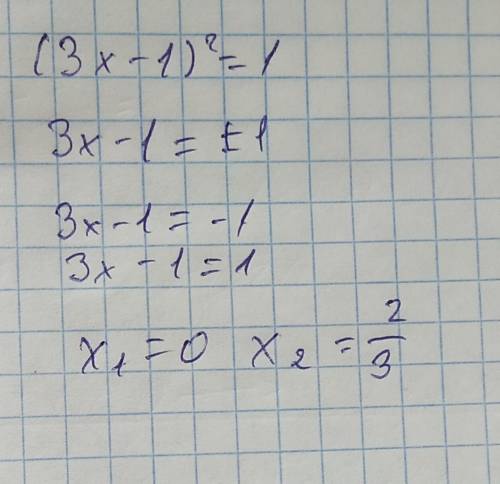 (3x-1)²=1
3x-1=±1
3x-1=-1
3x-1=1
x₁=0 x₂=2/3